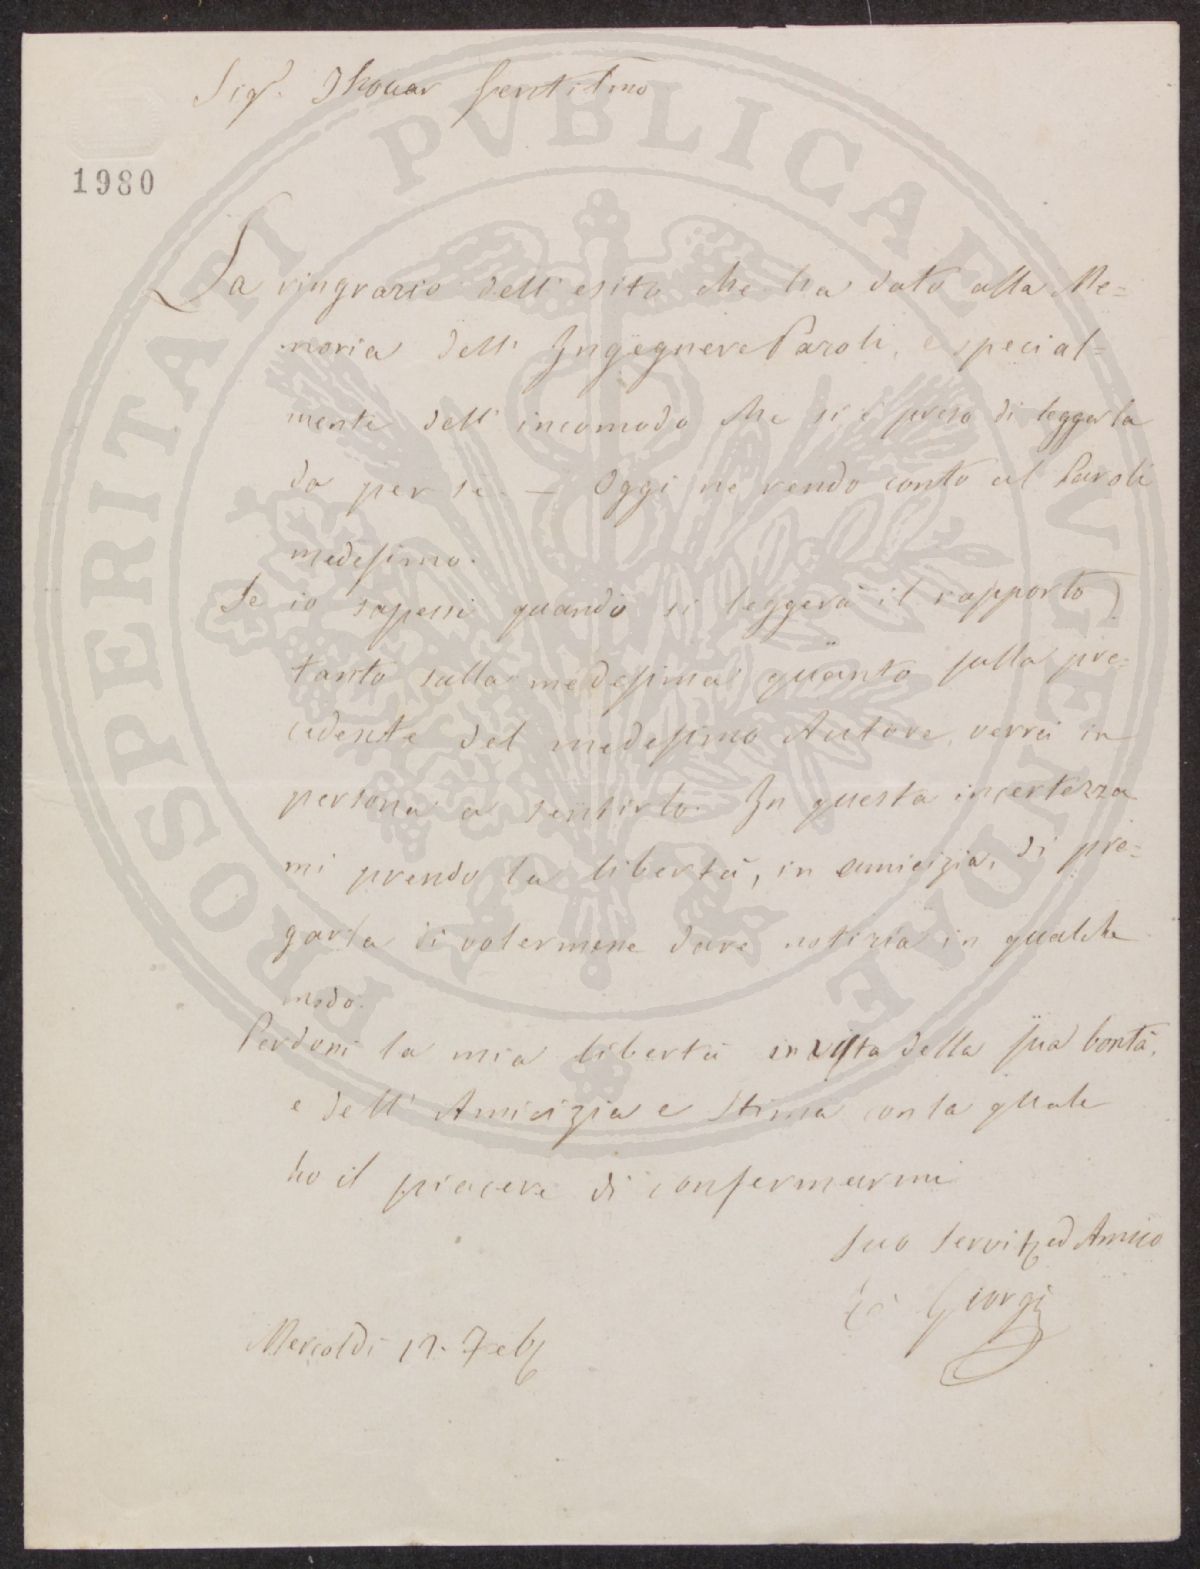 Sigr. Thouar Gentilmo
1980
La ringrazio dell' esito che ha dato alla Me=
moria dell' Ingegnere Paroli, e special=
mente dell' incomodo che si è preso di leggerla
da per sè. — Oggi ne rendo conto al Paroli
medesimo.
Se io sapessi quando si leggerà il rapporto
tanto sulla medesima quanto sulla pre=
cedente del medesimo Autore, verrei in
persona a sentirlo. In questa incertezza
mi prendo la libertà, in amicizia, di pre=
garla di volermene dare notizia in qualche
modo.
Perdoni la mia libertà in vista della sua bontà,
e dell' Amicizia e Stima con la quale
ho il piacere di confermarmi
Suo Servitr ed Amico
Giorgi
Mercoldì 17. Feb
PROSPERITATI PVBLICAE AVGENDAE